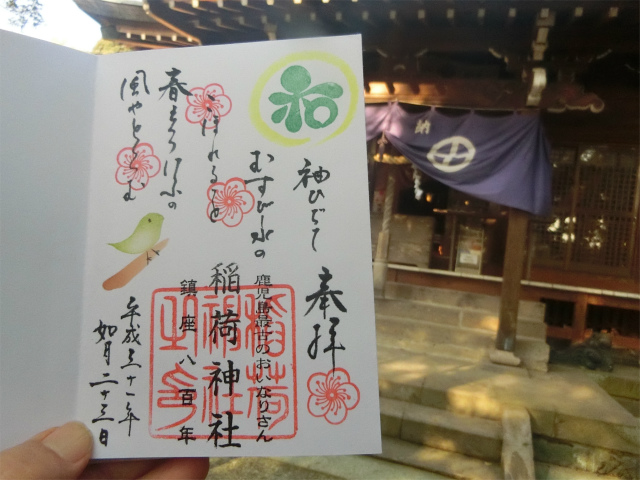 和
袖ひぢて
むすびし水の
こほれるを
春立つけふの
風やとくらむ
奉拝
鹿児島最古のおいなりさん
稲荷神社
鎮座八百年
稲荷神社之印
平成三十一年
如月二十三日
納